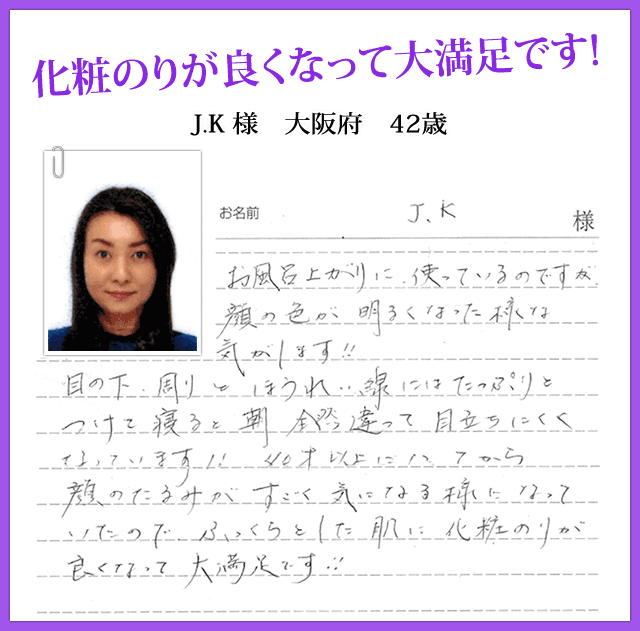 化粧のりが良くなって大満足です!
J.K 様　大阪府　42歳
お名前　J.K　様
お風呂上がりに、使っているのですが、
顔の色が明るくなった様な
気がします!!
目の下、周りとほうれい線にはたっぷりと
つけて寝ると朝全然違って目立ちにくく
なっています!! 40才以上になってから
顔のたるみがすごく気になる様になって
いたので、ふっくらとした肌に化粧のりが
良くなって大満足です!!